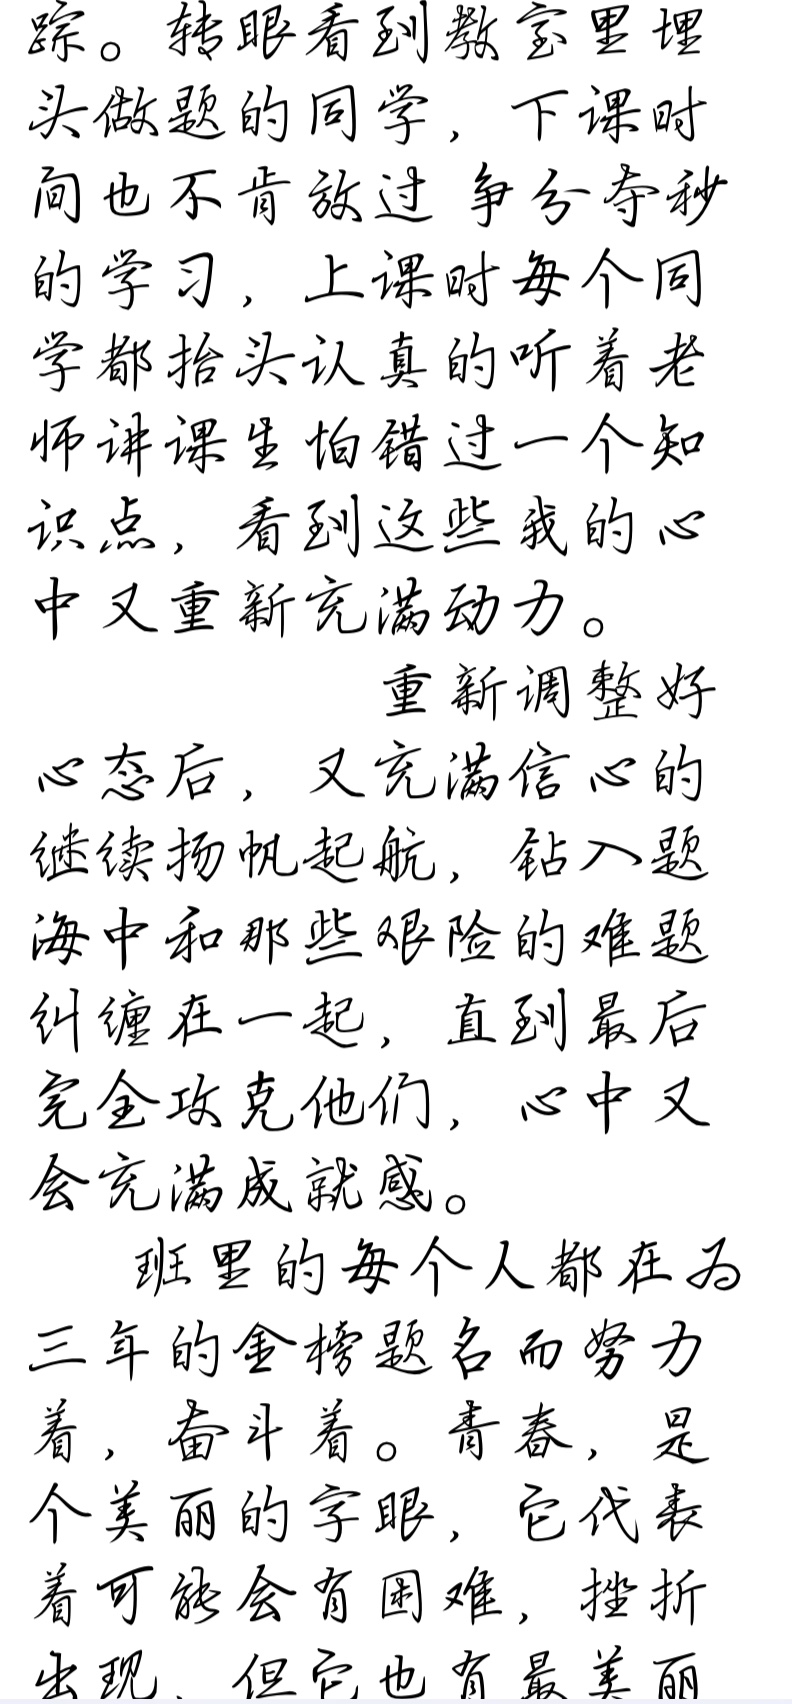 踪。转眼看到教室里埋
头做题的同学，下课时
间也不肯放过 争分夺秒
的学习，上课时每个同
学都抬头认真的听着老
师讲课生怕错过一个知
识点，看到这些我的心
中又重新充满动力。
重新调整好
心态后，又充满信心的
继续扬帆起航，钻入题
海中和那些艰险的难题
纠缠在一起，直到最后
完全攻克他们，心中又
会充满成就感。
班里的每个人都在为
三年的金榜题名而努力
着，奋斗着。青春，是
个美丽的字眼，它代表
着可能会有困难，挫折
出现，但它也有最美丽